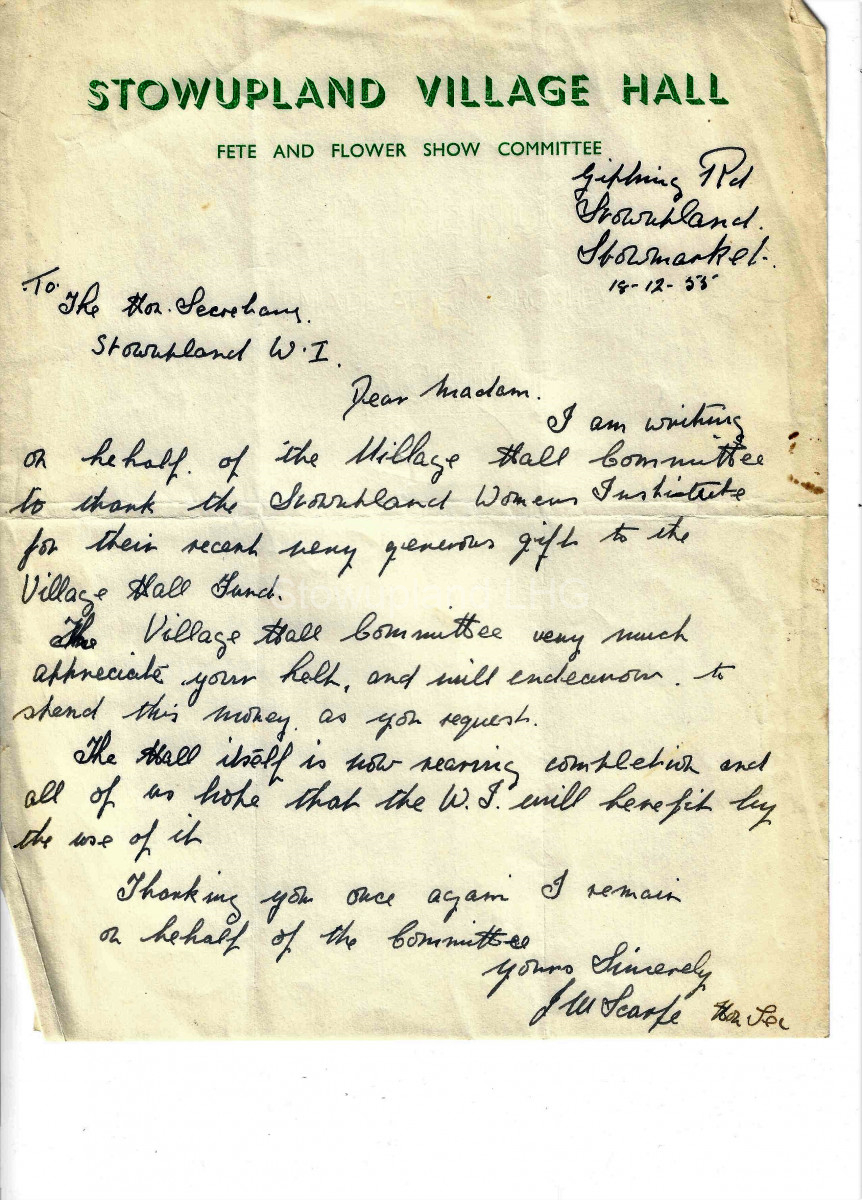 STOWUPLAND VILLAGE HALL
FETE AND FLOWER SHOW COMMITTEE
Gipping Rd
Stowupland.
Stowmarket.
18-12-55
To.
The Hon. Secretary.
Stowupland W.I.
Dear Madam.
I am writing
on behalf of the Village Hall Committee
to thank the Stowupland Womens Institute
for their recent very generous gift to the
Village Hall Fund.
The Village Hall Committee very much
appreciate your help, and will endeavour to
spend this money as you request.
The Hall itself is now nearing completion and
all of us hope that the W.I. will benefit by
the use of it
Thanking you once again I remain
on behalf of the Committee
yours Sincerely
J M Scarfe Hon Sec